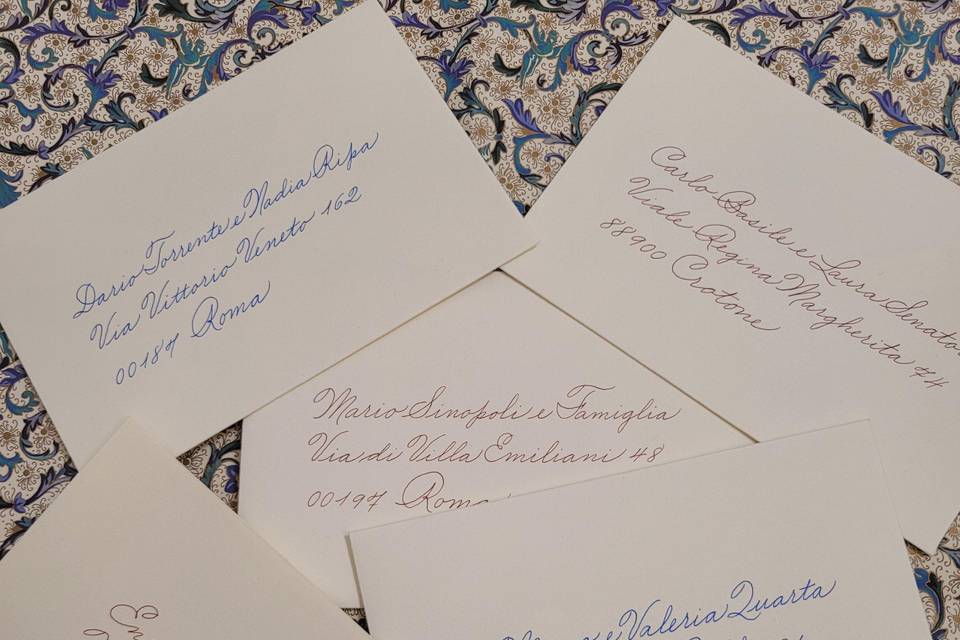 Dario Torrente e Nadia Ripa
Via Vittorio Veneto 162
00187 Roma
Carlo Basile e Laura
Viale Regina Margherita 74
88900 Crotone
Mario Sinopoli e Famiglia
Via di Villa Emiliani 48
00197 Roma
e Valeria Quarta